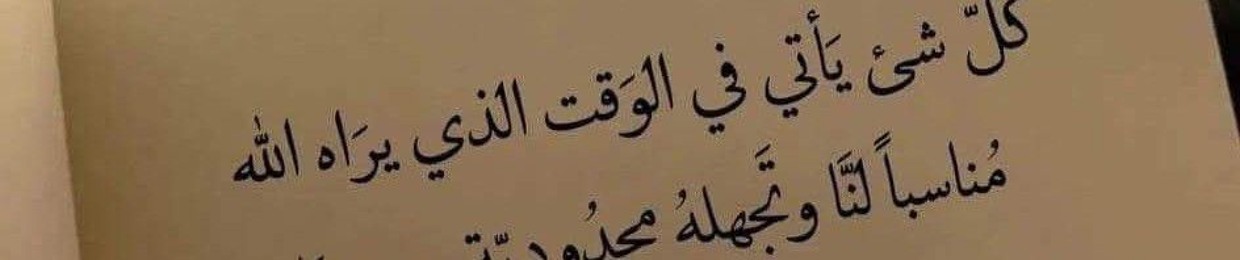 كلّ شئ يَأتي في الوَقت الذي يرَاه الله
مُناسباً لنَّا وتَجهلهُ